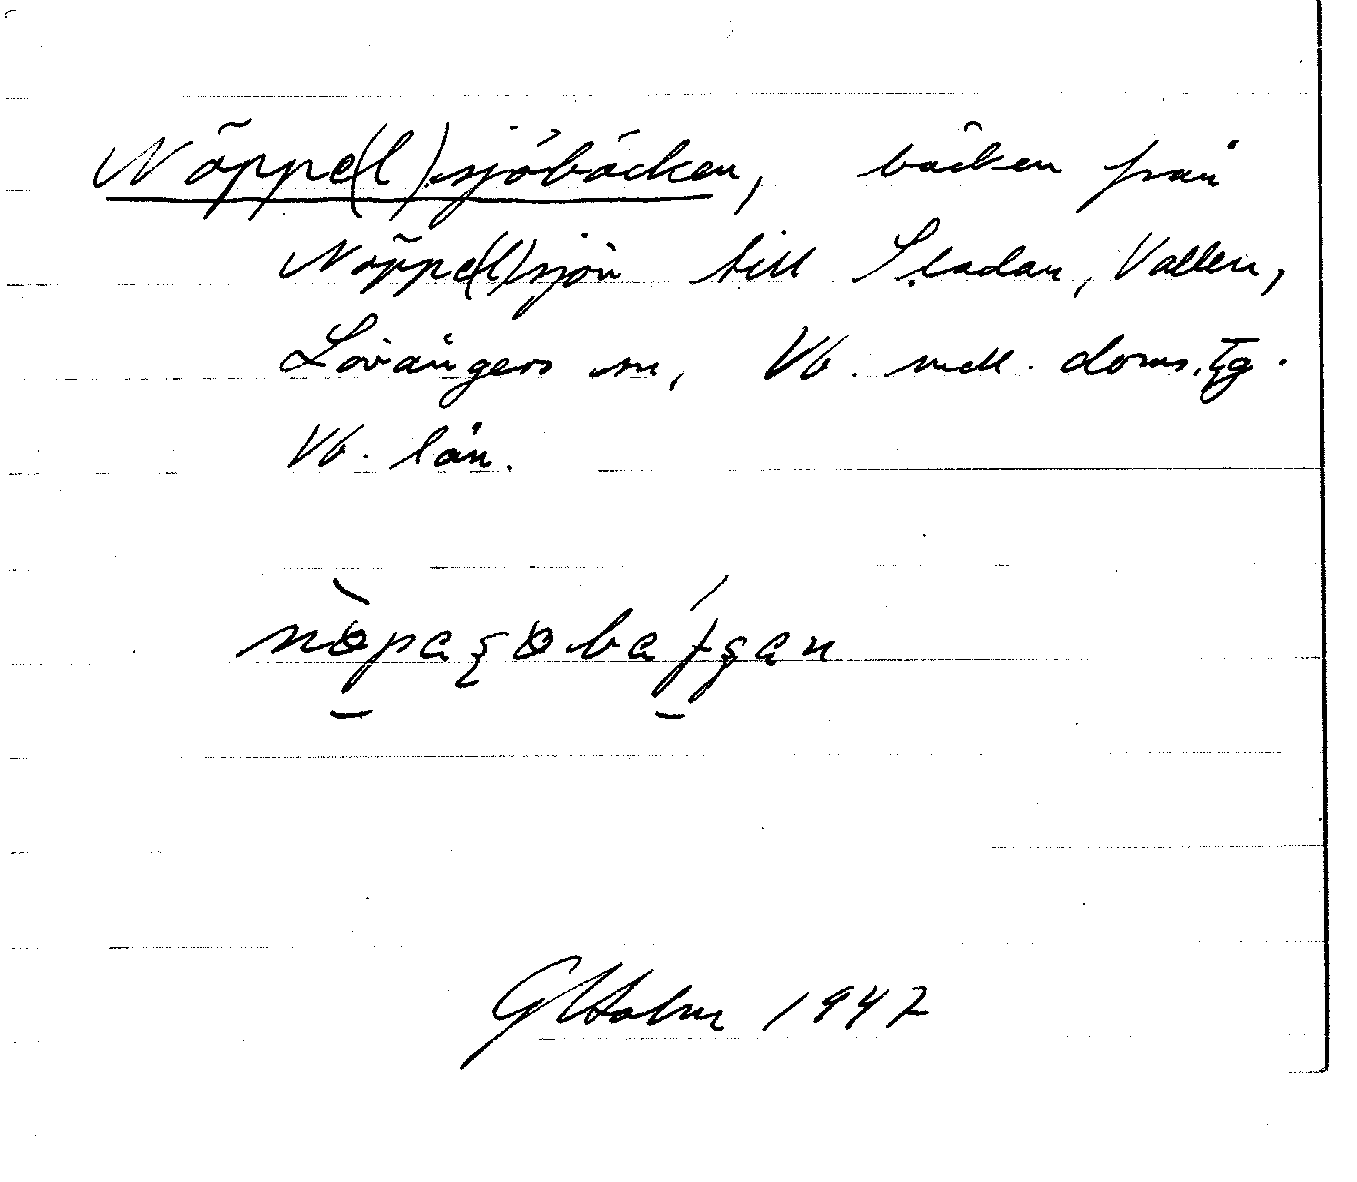 Nöppe(l)sjöbäcken, bäcken från
Nöppe(l)sjön till Sladan, Vallen,
Lövångers sn, Vb. mell. doms.tg.
Vb. län.
G Holm 1947